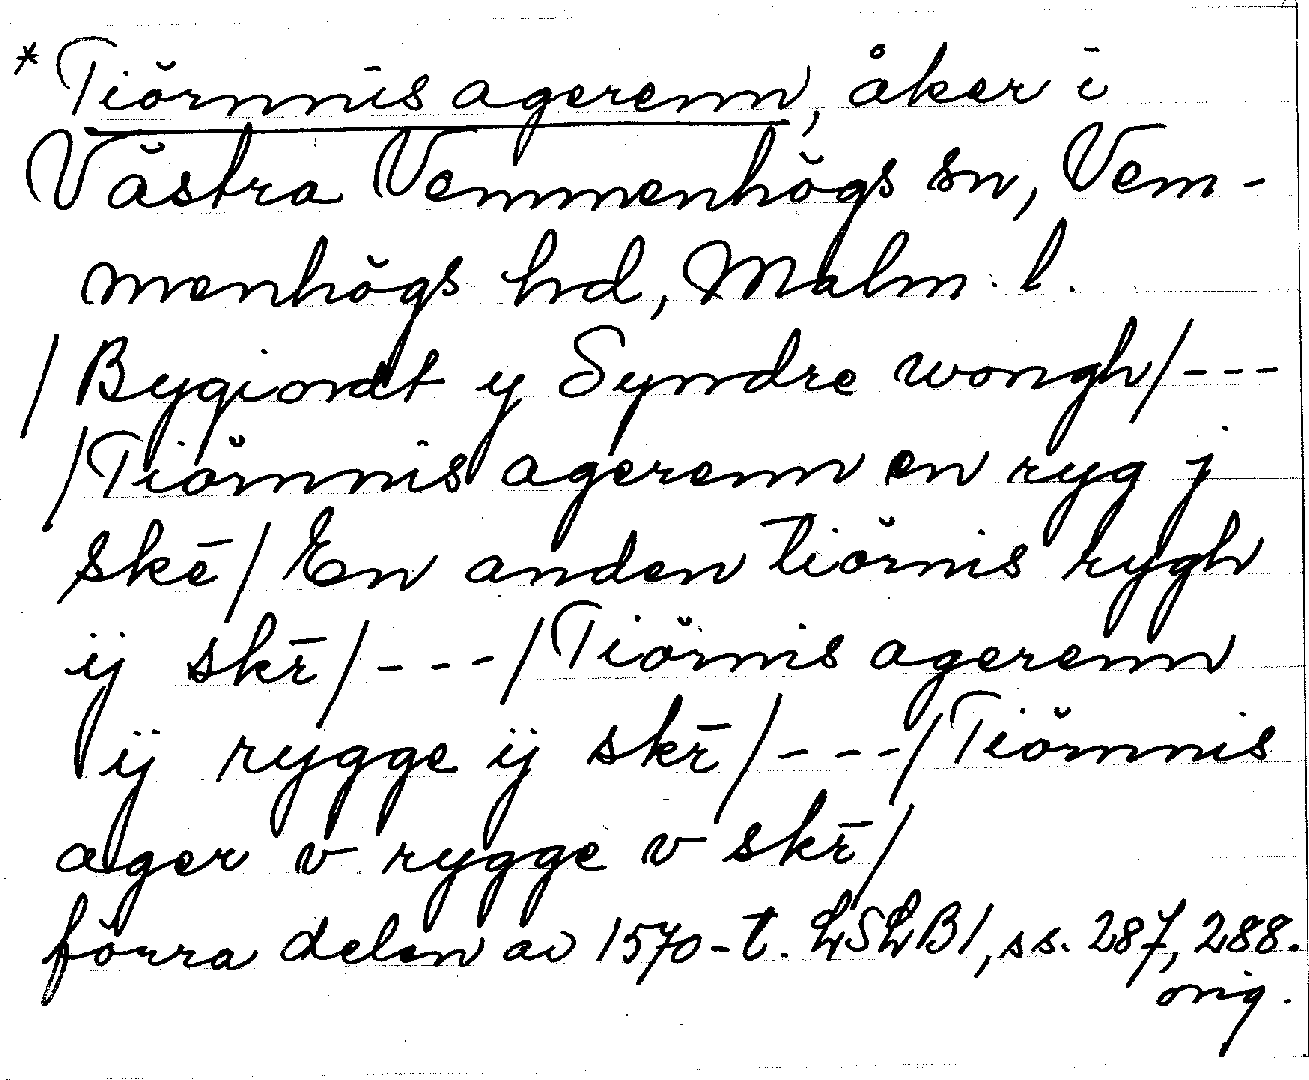 *Tiörnnis agerenn, åker i
Västra Vemmenhögs sn, Vem-
menhögs hd, Malm. l.
/Bygiordt y Syndre wongh/---
/Tiörnnis agerenn en ryg j
skē/ En anden tiörnis rygh
ij skr̄/---/Tiörnis agerenn
ij rygge ij skr̄/---/Tiörnnis
ager v rygge v skr̄/
förra delen av 1570-t. LSLB1, ss. 287, 288.
orig.